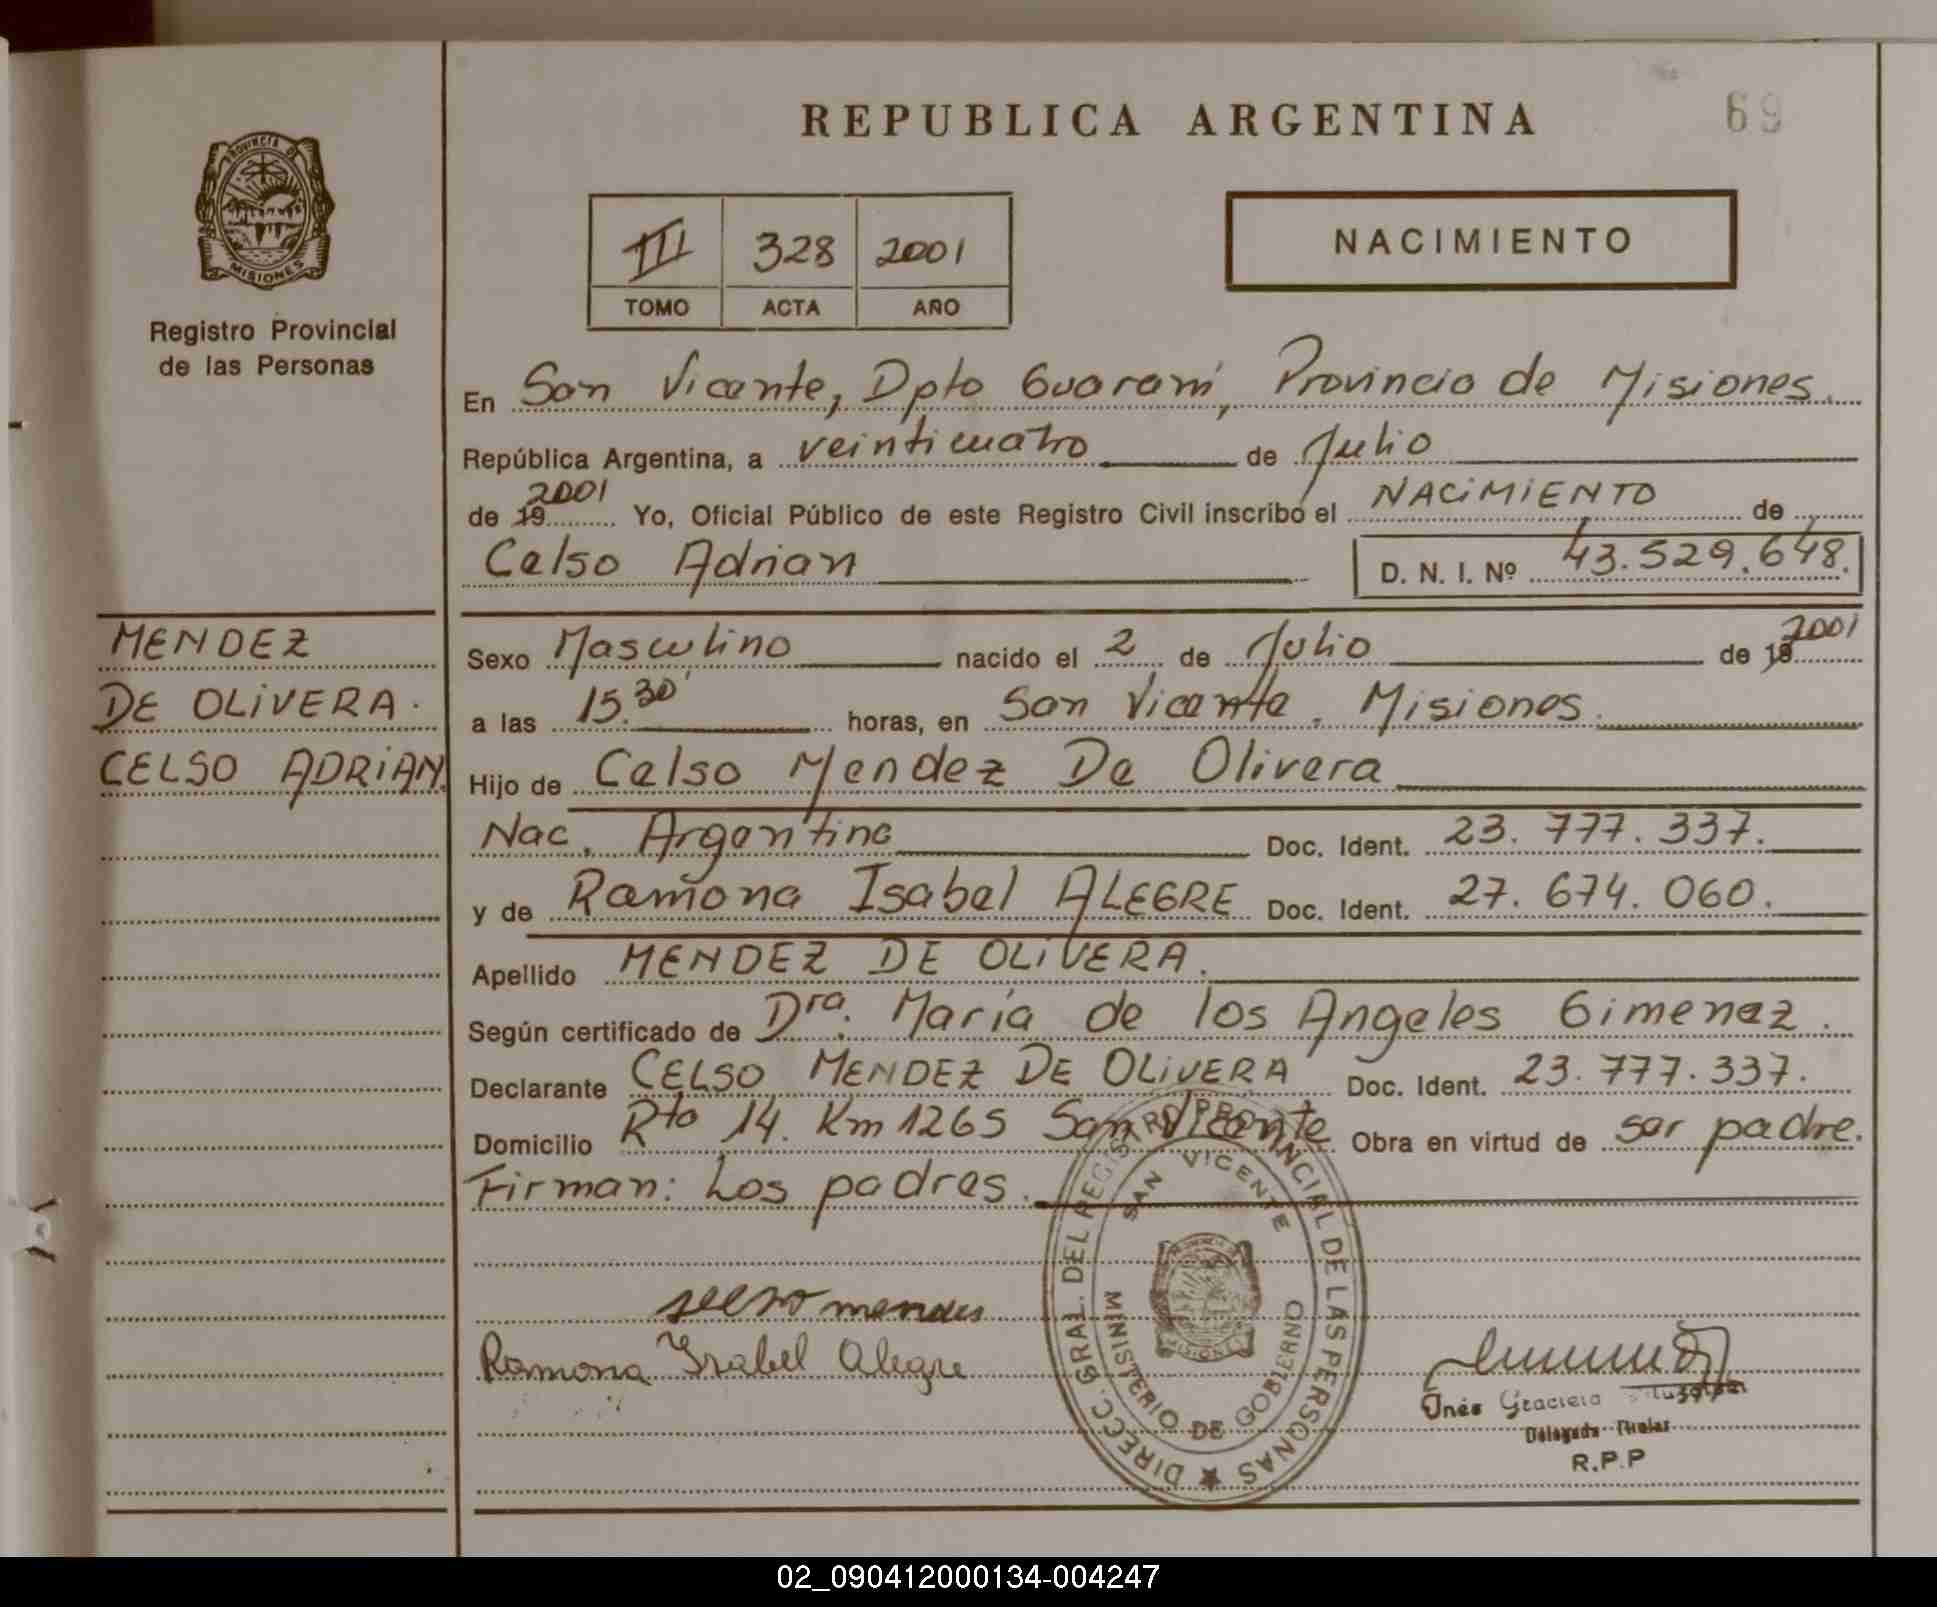 REPUBLICA ARGENTINA
69
PROVINCIA DE
MISIONES
Registro Provincial
de las Personas
III 328 2001
TOMO ACTA AÑO
NACIMIENTO
En San Vicente, Dpto Guaraní, Provincia de Misiones.
República Argentina, a veinticuatro de Julio
de 19 2001 Yo, Oficial Público de este Registro Civil inscribo el NACIMIENTO de
Celso Adrian D. N. I. Nº 43.529.648.
MENDEZ
DE OLIVERA.
CELSO ADRIAN.
Sexo Masculino nacido el 2 de Julio de 19 2001
a las 15.30' horas, en San Vicente. Misiones.
Hijo de Celso Mendez De Olivera
Nac. Argentina Doc. Ident. 23.777.337.
y de Ramona Isabel ALEGRE Doc. Ident. 27.674.060.
Apellido MENDEZ DE OLIVERA.
Según certificado de Dra. María de los Angeles Gimenez.
Declarante CELSO MENDEZ DE OLIVERA Doc. Ident. 23.777.337.
Domicilio Rta 14. Km 1265 San Vicente Obra en virtud de ser padre.
Firman: Los padres.
DIRECC. GRAL. DEL REGISTRO PROVINCIAL DE LAS PERSONAS
SAN VICENTE
MINISTERIO DE GOBIERNO
MISIONES
mendes
Ramona Isabel Alegre
Inés Graciela
Delegada Titular
R.P.P
02_090412000134-004247